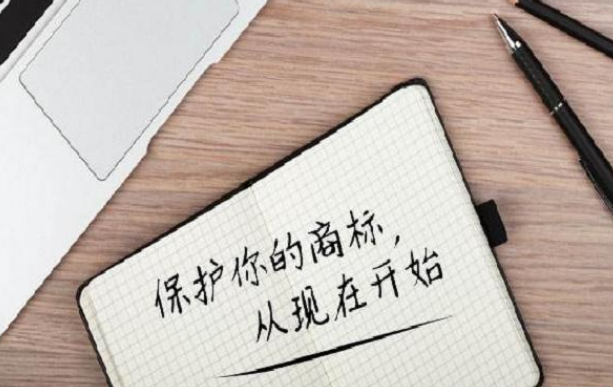 保护你的商标,
从现在开始